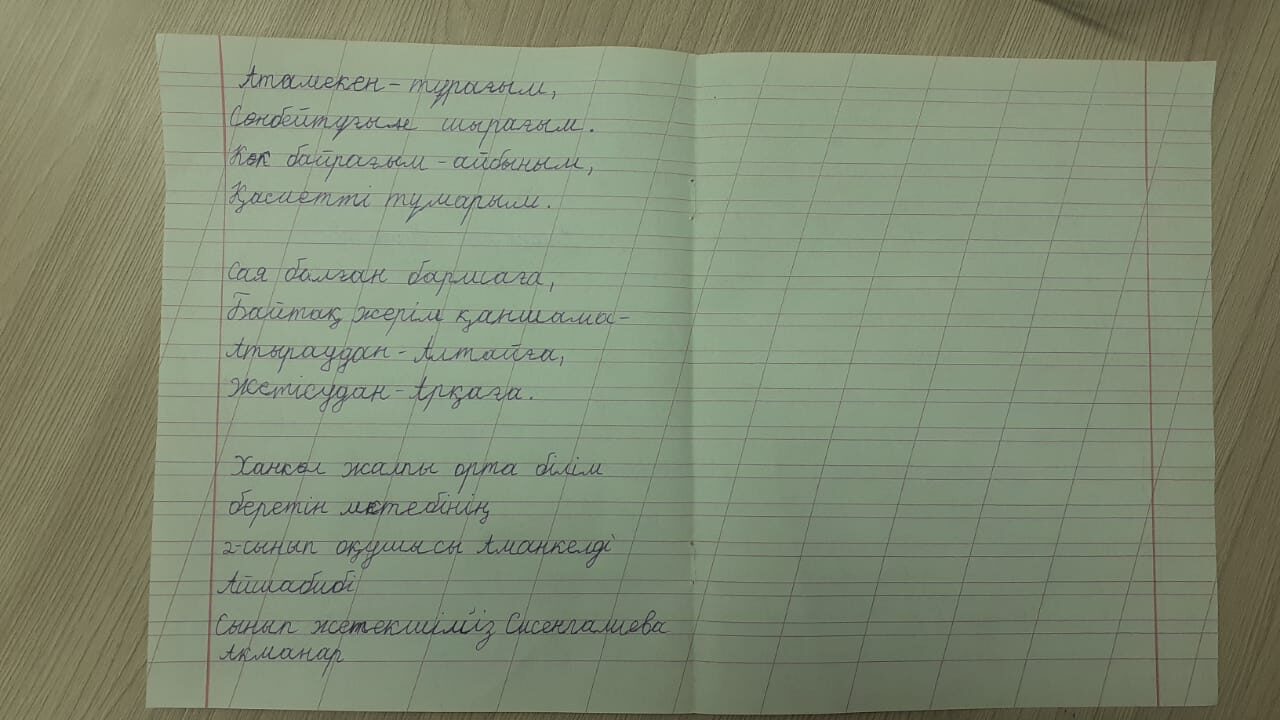 Атамекен - тұрағым,
Сөнбейтұғын шырағым.
Көк байрағым - айбыным,
Қасиетті тұмарым.
Сая болған баршаға,
Байтақ жерім қаншама-
Атыраудан - Алтайға,
Жетісудан - Арқаға.
Ханкөл жалпы орта білім
беретін мектебінің
2-сынып оқушысы Аманкелді
Айшабибі
Сынып жетекшіміз Сисенгалиева
Акманар